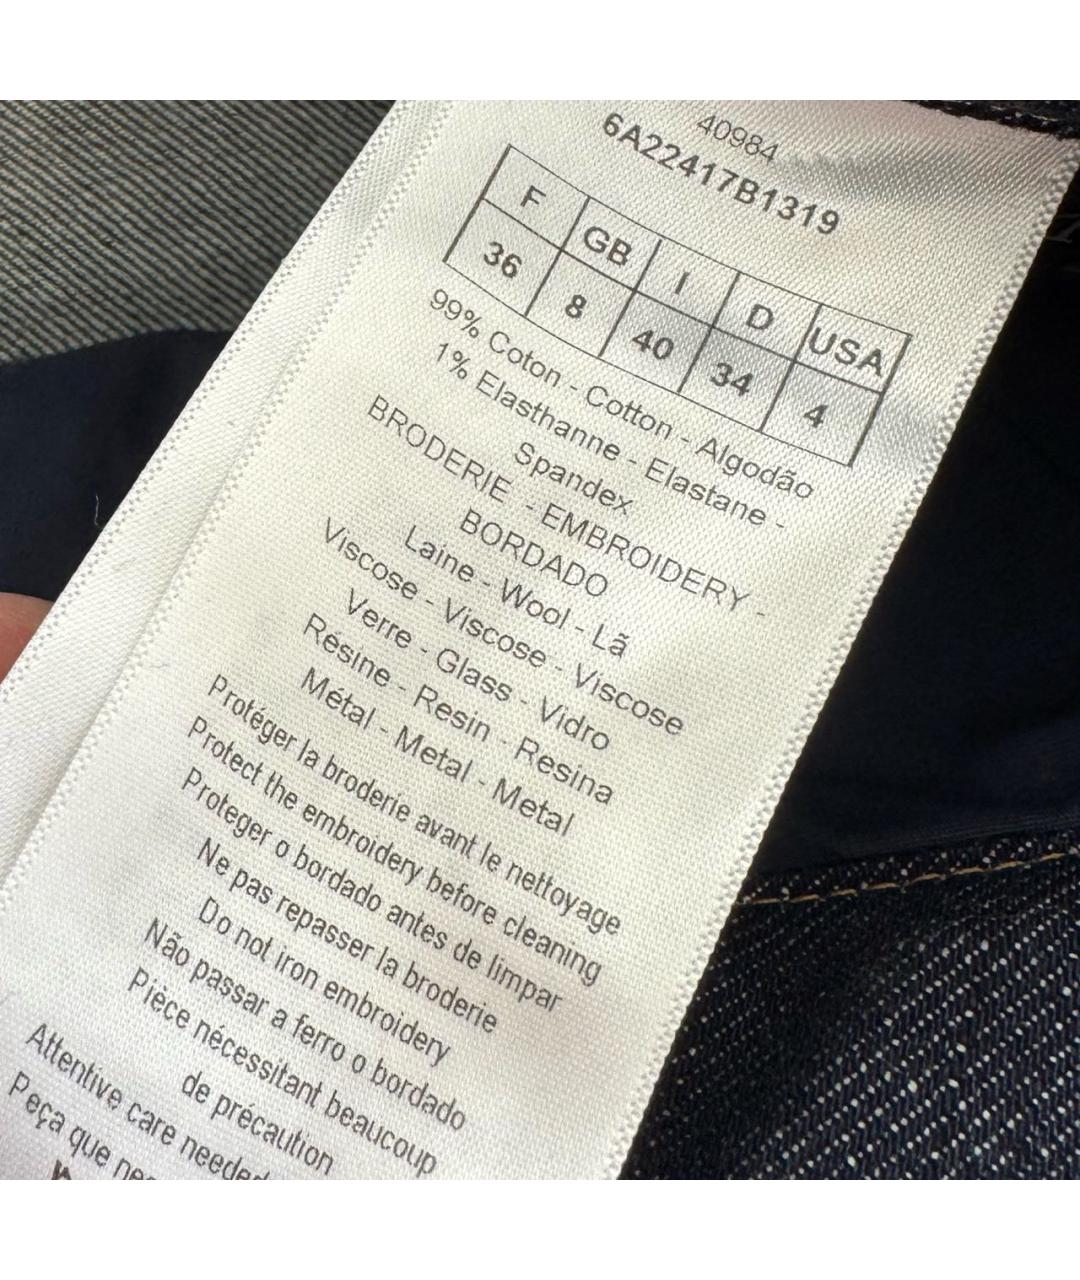 40984
6A22417B1319
F GB I D USA
36 8 40 34 4
99% Coton - Cotton - Algodão
1% Elasthanne - Elastane -
Spandex
BRODERIE - EMBROIDERY -
BORDADO
Laine - Wool - Lã
Viscose - Viscose - Viscose
Verre - Glass - Vidro
Résine - Resin - Resina
Métal - Metal - Metal
Protéger la broderie avant le nettoyage
Protect the embroidery before cleaning
Proteger o bordado antes de limpar
Ne pas repasser la broderie
Do not iron embroidery
Não passar a ferro o bordado
Pièce nécessitant beaucoup
de précaution
Attentive care needed
Peça que